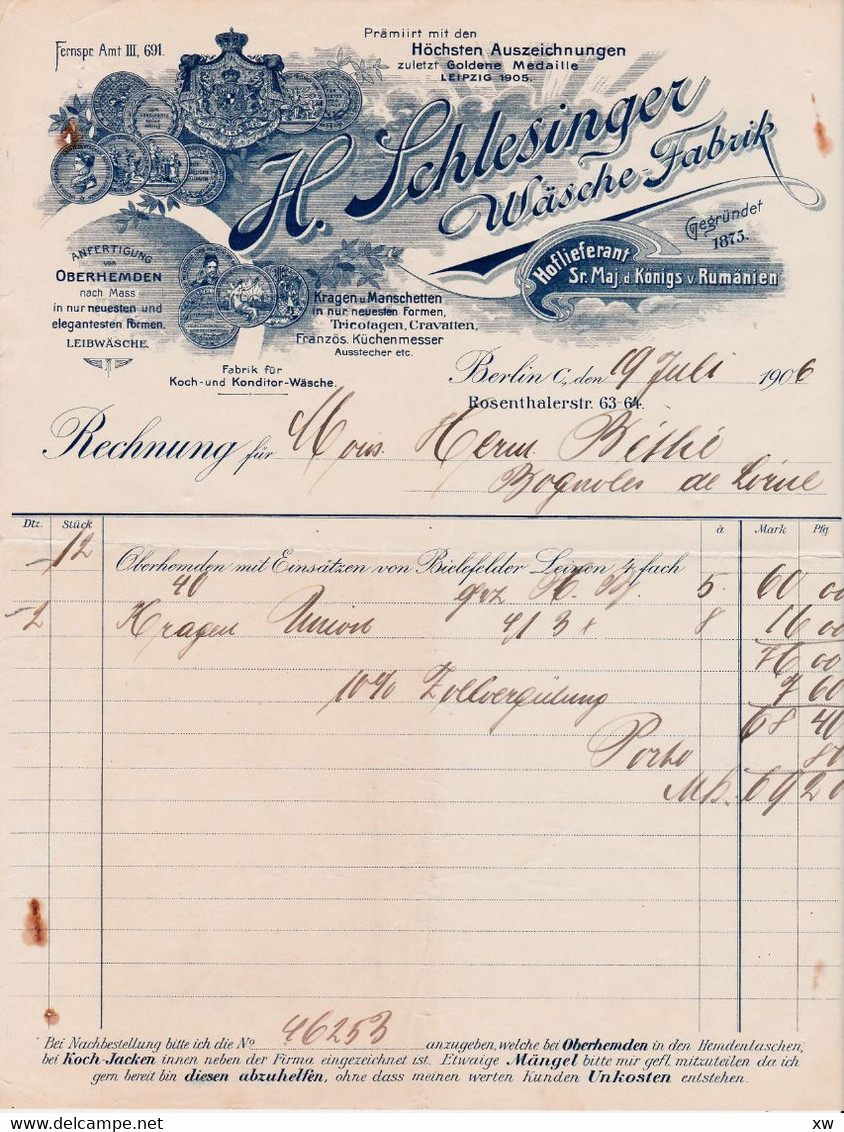 Fernspr. Amt III, 691.
Prämiirt mit den
Höchsten Auszeichnungen
zuletzt Goldene Medaille
LEIPZIG 1905.
H. Schlesinger
Wäsche-Fabrik
Gegründet
1875.
Hoflieferant
Sr. Maj. d. Königs v. Rumänien
ANFERTIGUNG
von
OBERHEMDEN
nach Mass
in nur neuesten und
elegantesten Formen.
LEIBWÄSCHE.
Kragen u. Manschetten
in nur neuesten Formen,
Tricotagen, Cravatten,
Französ. Küchenmesser
Ausstecher etc.
Fabrik für
Koch- und Konditor-Wäsche.
Berlin C., den 19 Juli 1906
Rosenthalerstr. 63-64.
Rechnung für Mons. Herm.
de
Dtz. Stück à Mark Pfg
12 Oberhemden mit Einsätzen von Bielefelder Leinen 4 fach
40 5. 60 00
2 Kragen Union 8 16 00
76 00
10% Zollvergütung 7 60
68 40
Porto 80
Mk. 69 20
Bei Nachbestellung bitte ich die No 46253 anzugeben, welche bei Oberhemden in den Hemdenlaschen,
bei Koch-Jacken innen neben der Firma eingezeichnet ist. Etwaige Mängel bitte mir gefl. mitzuteilen da ich
gern bereit bin diesen abzuhelfen, ohne dass meinen werten Kunden Unkosten entstehen.
xw